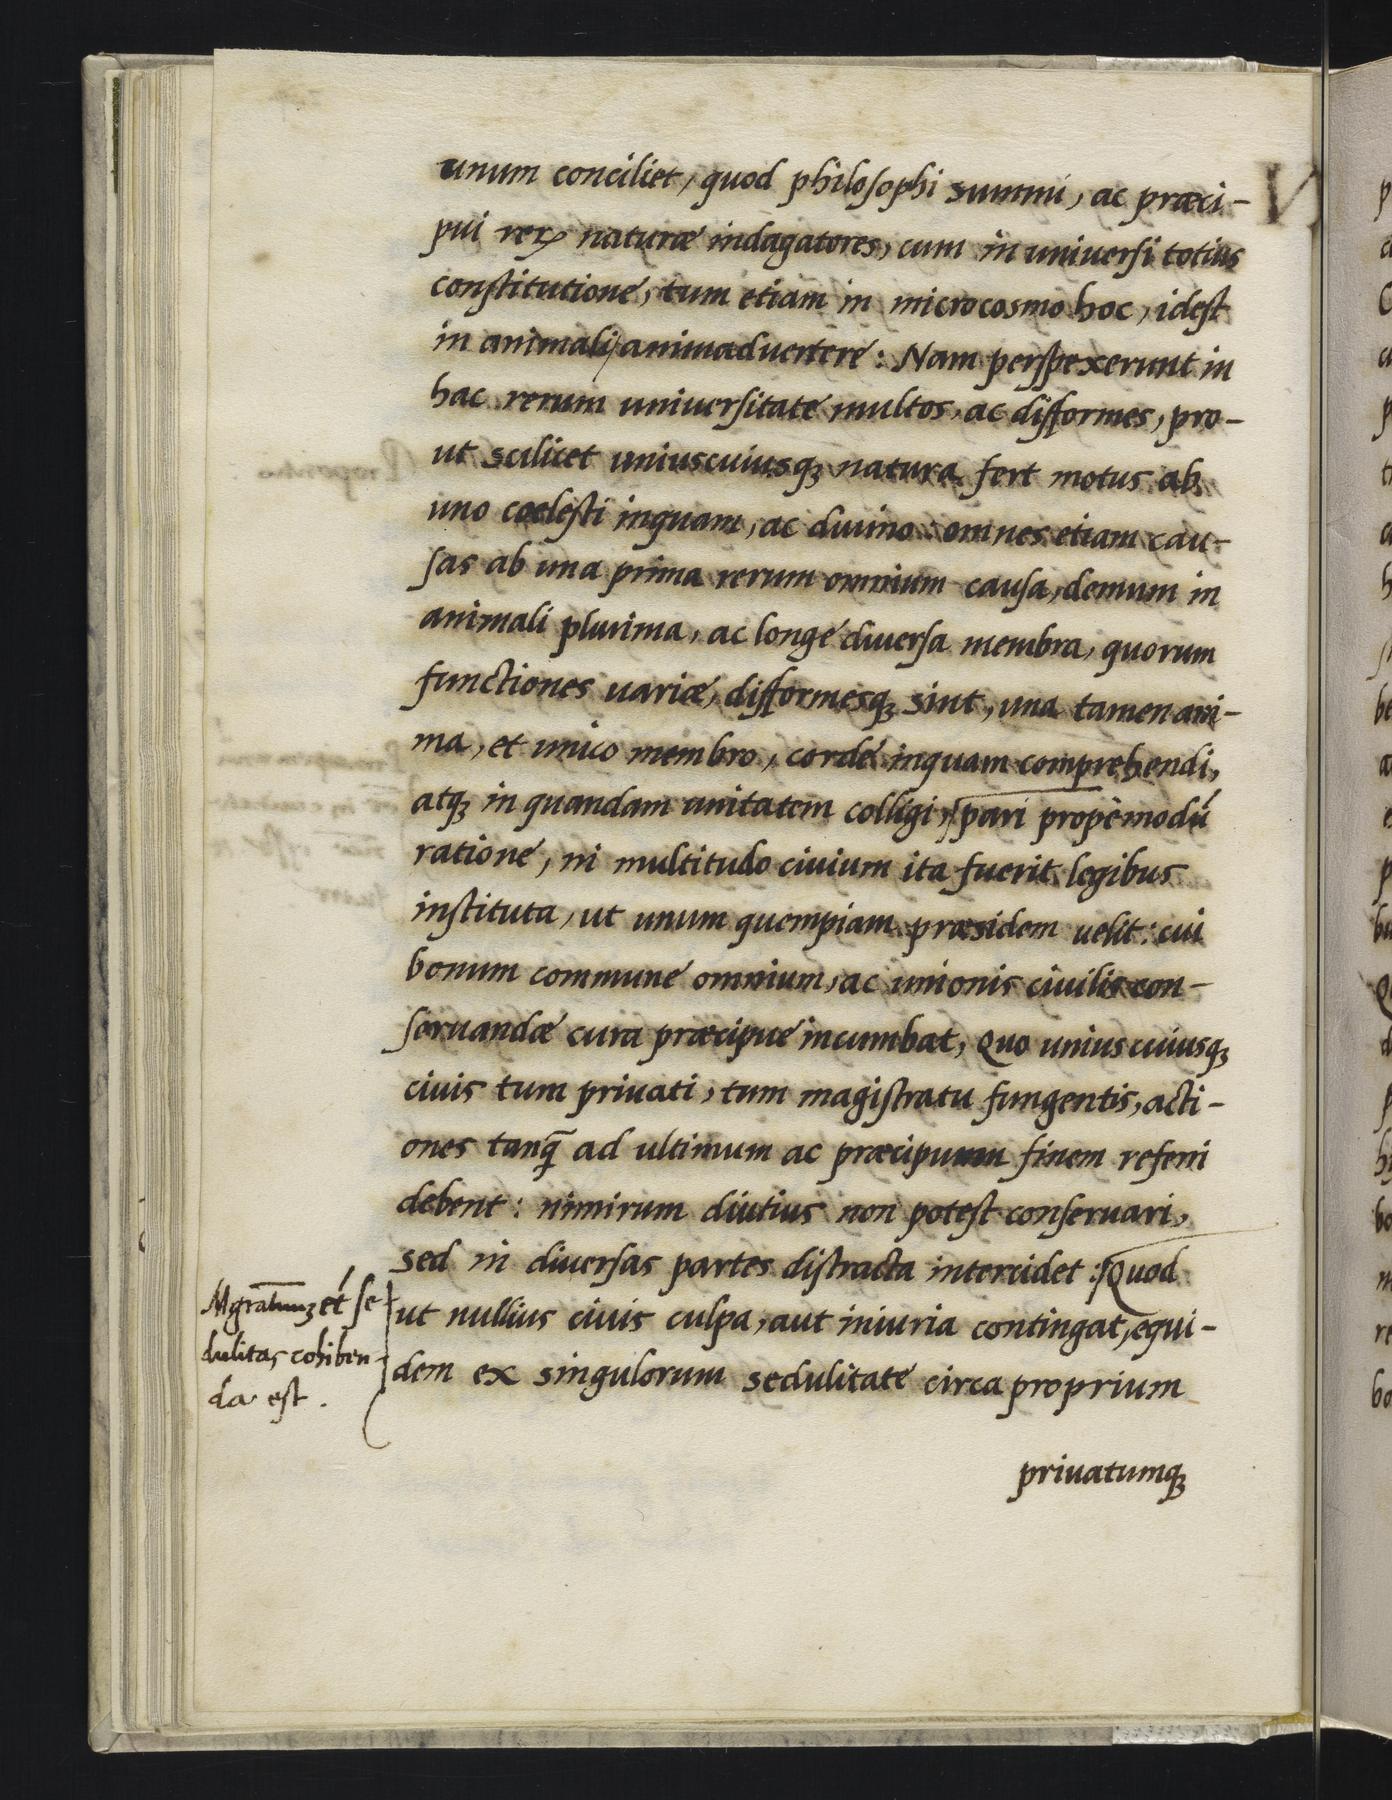 unum conciliet, quod philosophi summi, ac præci-
pui reꝝ naturæ indagatores, cum in uniuersi totius
constitutione, tum etiam in microcosmo hoc, idest
in animali animaduertere: Nam perspexerunt in
hac rerum uniuersitate multos, ac difformes, pro-
ut scilicet uniuscuiusqȝ natura fert motus ab
uno coelesti inquam, ac diuino: omnes etiam cau-
sas ab una prima rerum omnium causa, demum in
animali plurima, ac longe diuersa membra, quorum
functiones uariæ, difformesqȝ sint, una tamen ani-
ma, et unico membro, corde inquam comprehendi,
atqȝ in quandam unitatem colligi, pari propèmodú
ratione, ni multitudo ciuium ita fuerit legibus
instituta, ut unum quempiam præsidem uelit: cui
bonum commune omnium, ac unionis ciuilis con-
seruandæ cura præcipue incumbat, Quo uniuscuiusqȝ
ciuis tum priuati, tum magistratu fungentis, acti-
ones tanq̃ ad ultimum ac præcipuum finem referri
debent: nimirum diutius non potest conseruari,
sed in diuersas partes distracta intercidet: Quod
ut nullius ciuis culpa, aut iniuria contingat, equi-
dem ex singulorum sedulitate circa proprium
priuatumqȝ
et se-
dulitas cohiben-
da est.